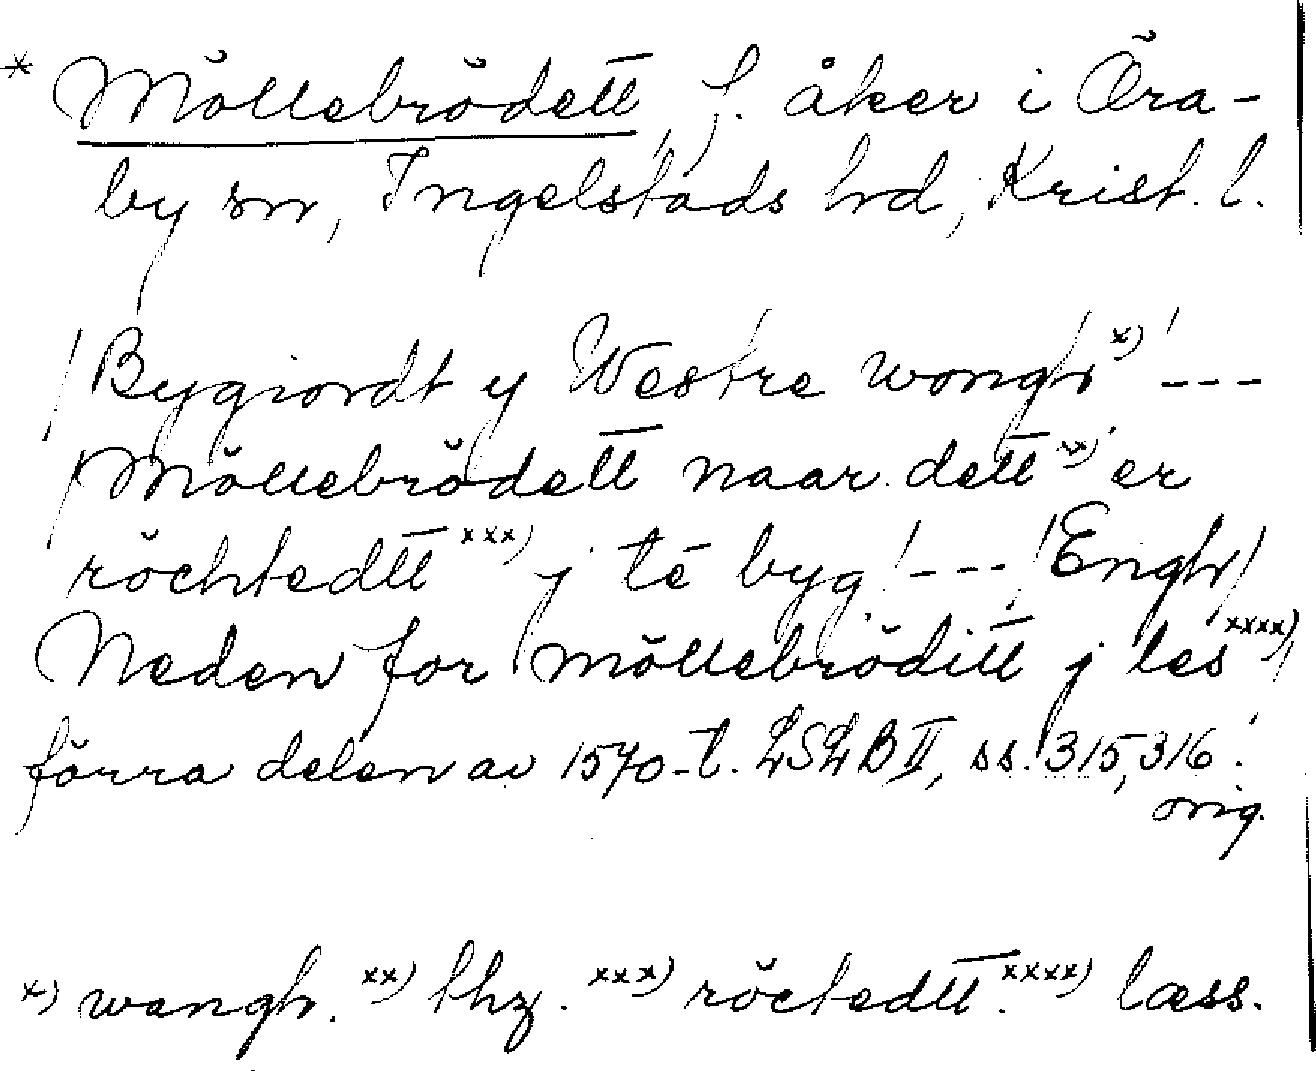 * Möllebrödett, f. åker i Öra-
by sn, Ingelstads hd, Krist. l.
/Bygiordt y Westre wongh x)/ ---
/Möllebrödett naar dett xx) er
röchtedtt xxx) j te byg/ --- /Engh/
Neden for möllebröditt j les xxxx)/
förra delen av 1570-t. LSLB II, ss. 315, 316.
orig.
x) wangh. xx) thz. xxx) röctedtt. xxxx) læss.